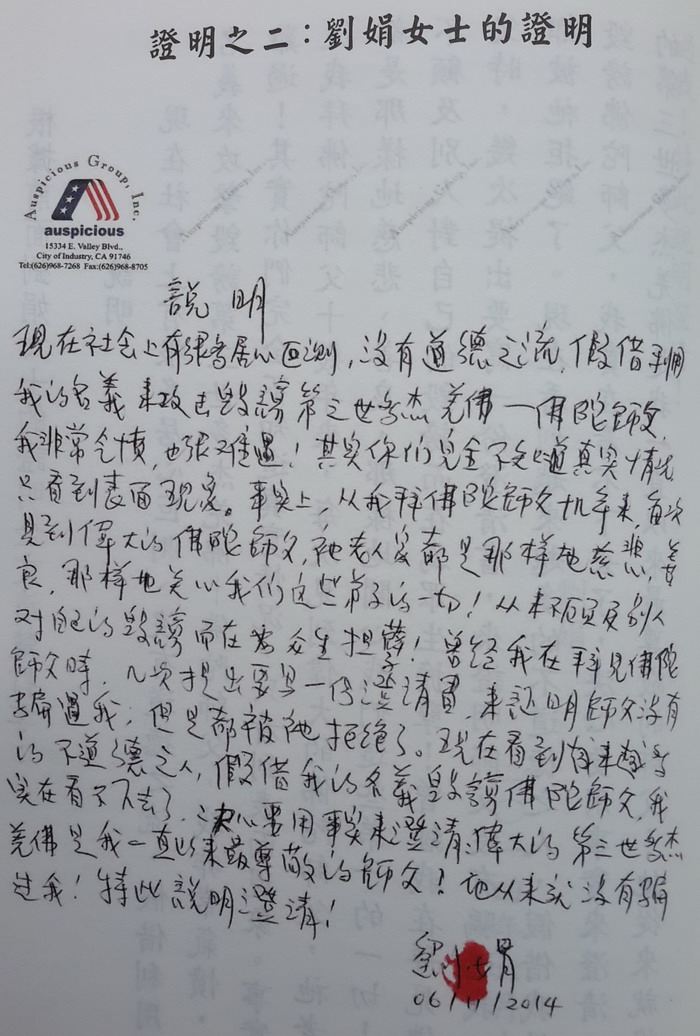 證明之二：劉娟女士的證明
Auspicious Group, Inc.
auspicious
15334 E. Valley Blvd.,
City of Industry, CA 91746
Tel:(626)968-7268 Fax:(626)968-8705
說明
现在社会上有很多居心叵测，没有道德之流，假借利用
我的名義来攻击毁謗第三世多杰羌佛一佛陀師父，
我非常气愤，也很难過！其实你们完全不知道真实情况
只看到表面现象。事实上，从我拜佛陀師父十几年来，每次
見到偉大的佛陀師父，祂老人家都是那样地慈悲，善
良，那样地关心我们这些弟子的一切！从来不顾及别人
对自己的毁謗而在為众生担孽！曾经我在拜見佛陀
師父時，几次提出要写一份澄清書，来証明師父没有
骗過我，但是都被祂拒绝了。现在看到有越来越多
的不道德之人，假借我的名義毁謗佛陀師父，我
实在看不下去了，决心要用事实来澄清：偉大的第三世多杰
羌佛是我一直以来最尊敬的師父！祂从来就没有骗
过我！特此説明澄清！
劉娟
06/11/2014